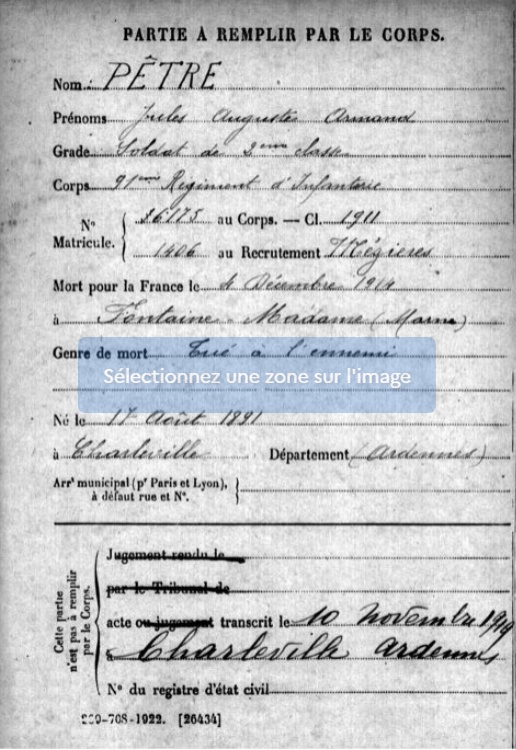 PARTIE À REMPLIR PAR LE CORPS.
Nom : PÊTRE
Prénoms Jules Auguste Armand
Grade Soldat de 2eme classe
Corps 91eme Regiment d'Infanterie
N° Matricule. { 16175 au Corps. — Cl. 1911
1406 au Recrutement Mézieres
Mort pour la France le 4 Décembre 1914
à Fontaine Madame (Marne)
Genre de mort Tué à l'ennemi
Sélectionnez une zone sur l'image
Né le 17 Août 1891
à Charleville Département (Ardennes)
Arrt municipal (pr Paris et Lyon), à défaut rue et N°. }
Cette partie n'est pas à remplir par le Corps.
Jugement rendu le
par le Tribunal de
acte ou jugement transcrit le 10 Novembre 1919
à Charleville Ardennes
N° du registre d'état civil
-708-1922. [26434]